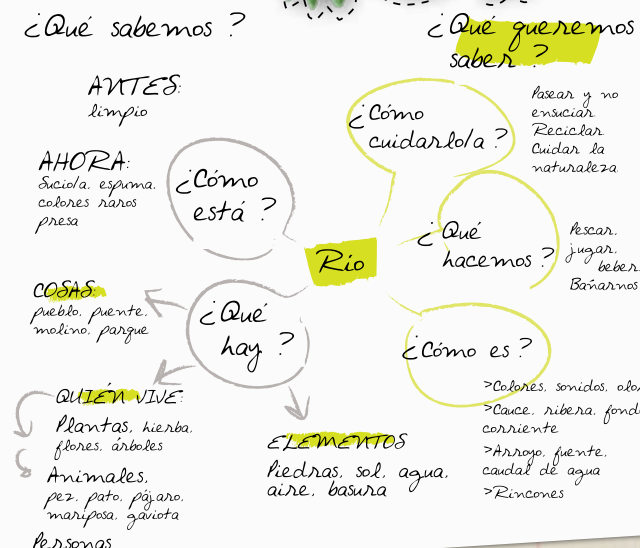 ¿Qué sabemos ?
ANTES:
limpio
AHORA:
Sucio/a, espuma,
colores raros
presa
¿Cómo
está ?
¿Qué
hay ?
COSAS:
pueblo, puente,
molino, parque
QUIÉN VIVE:
Plantas, hierba,
flores, árboles
Animales,
pez, pato, pájaro,
mariposa, gaviota
Personas
ELEMENTOS
Piedras, sol, agua,
aire, basura
Río
¿Qué queremos
saber ?
¿Cómo
cuidarlo/a ?
Pasear y no
ensuciar
Reciclar
Cuidar la
naturaleza
¿Qué
hacemos ?
Pescar,
jugar,
beber,
Bañarnos
¿Cómo es ?
>Colores, sonidos,
>Cauce, ribera,
corriente
>Arroyo, fuente,
caudal de agua
>Rincones